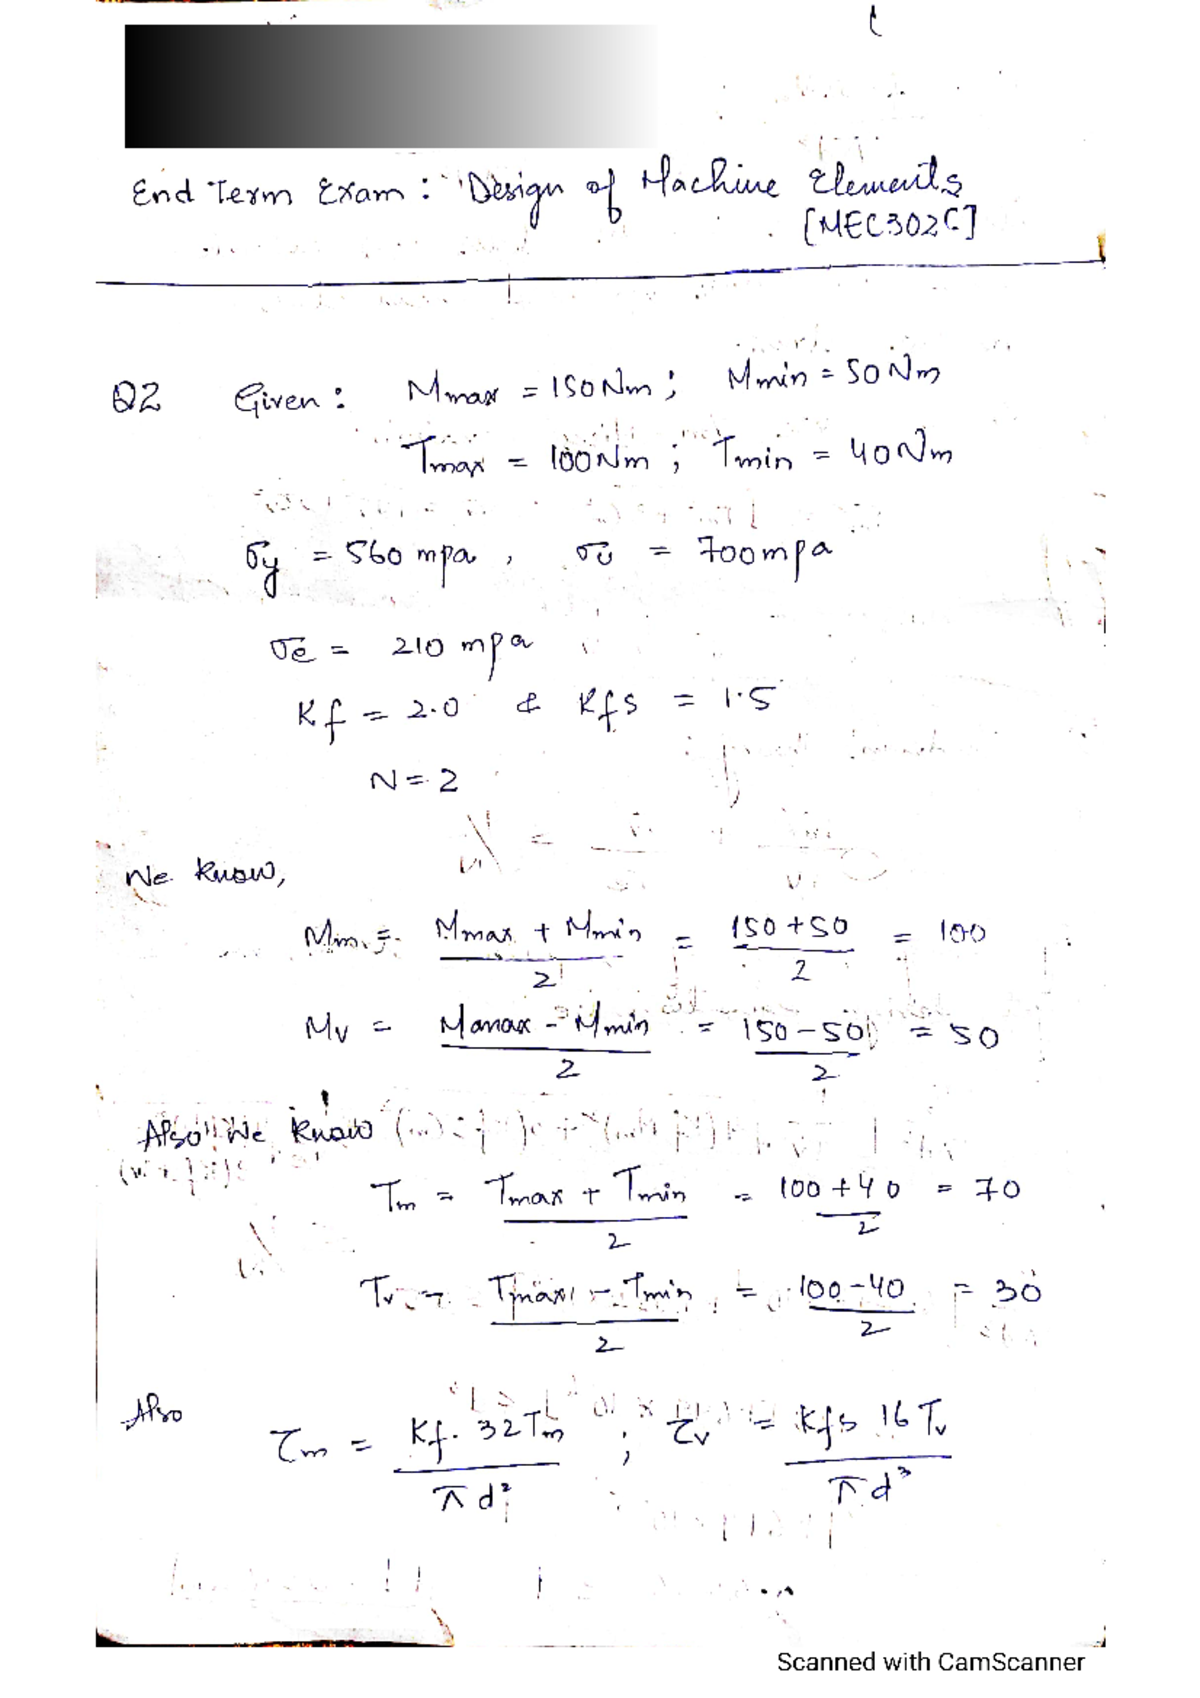 End Term Exam : "Design of Machine Elements
[MEC302C]
Q2 Given : Mmax = 150Nm ; Mmin = 50Nm
Tmax = 100Nm ; Tmin = 40Nm
σy = 560 mpa , σu = 700mpa
σe = 210 mpa
Kf = 2.0 & Kfs = 1.5
N = 2
We know,
Mm = Mmax + Mmin / 2 = 150+50 / 2 = 100
Mv = Mamax - Mmin / 2 = 150-50 / 2 = 50
Also We know
Tm = Tmax + Tmin / 2 = 100+40 / 2 = 70
Tv = Tmax - Tmin / 2 = 100-40 / 2 = 30
Also
τm = Kf. 32Tm / πd² ; τv = Kfs 16Tv / πd³
Scanned with CamScanner